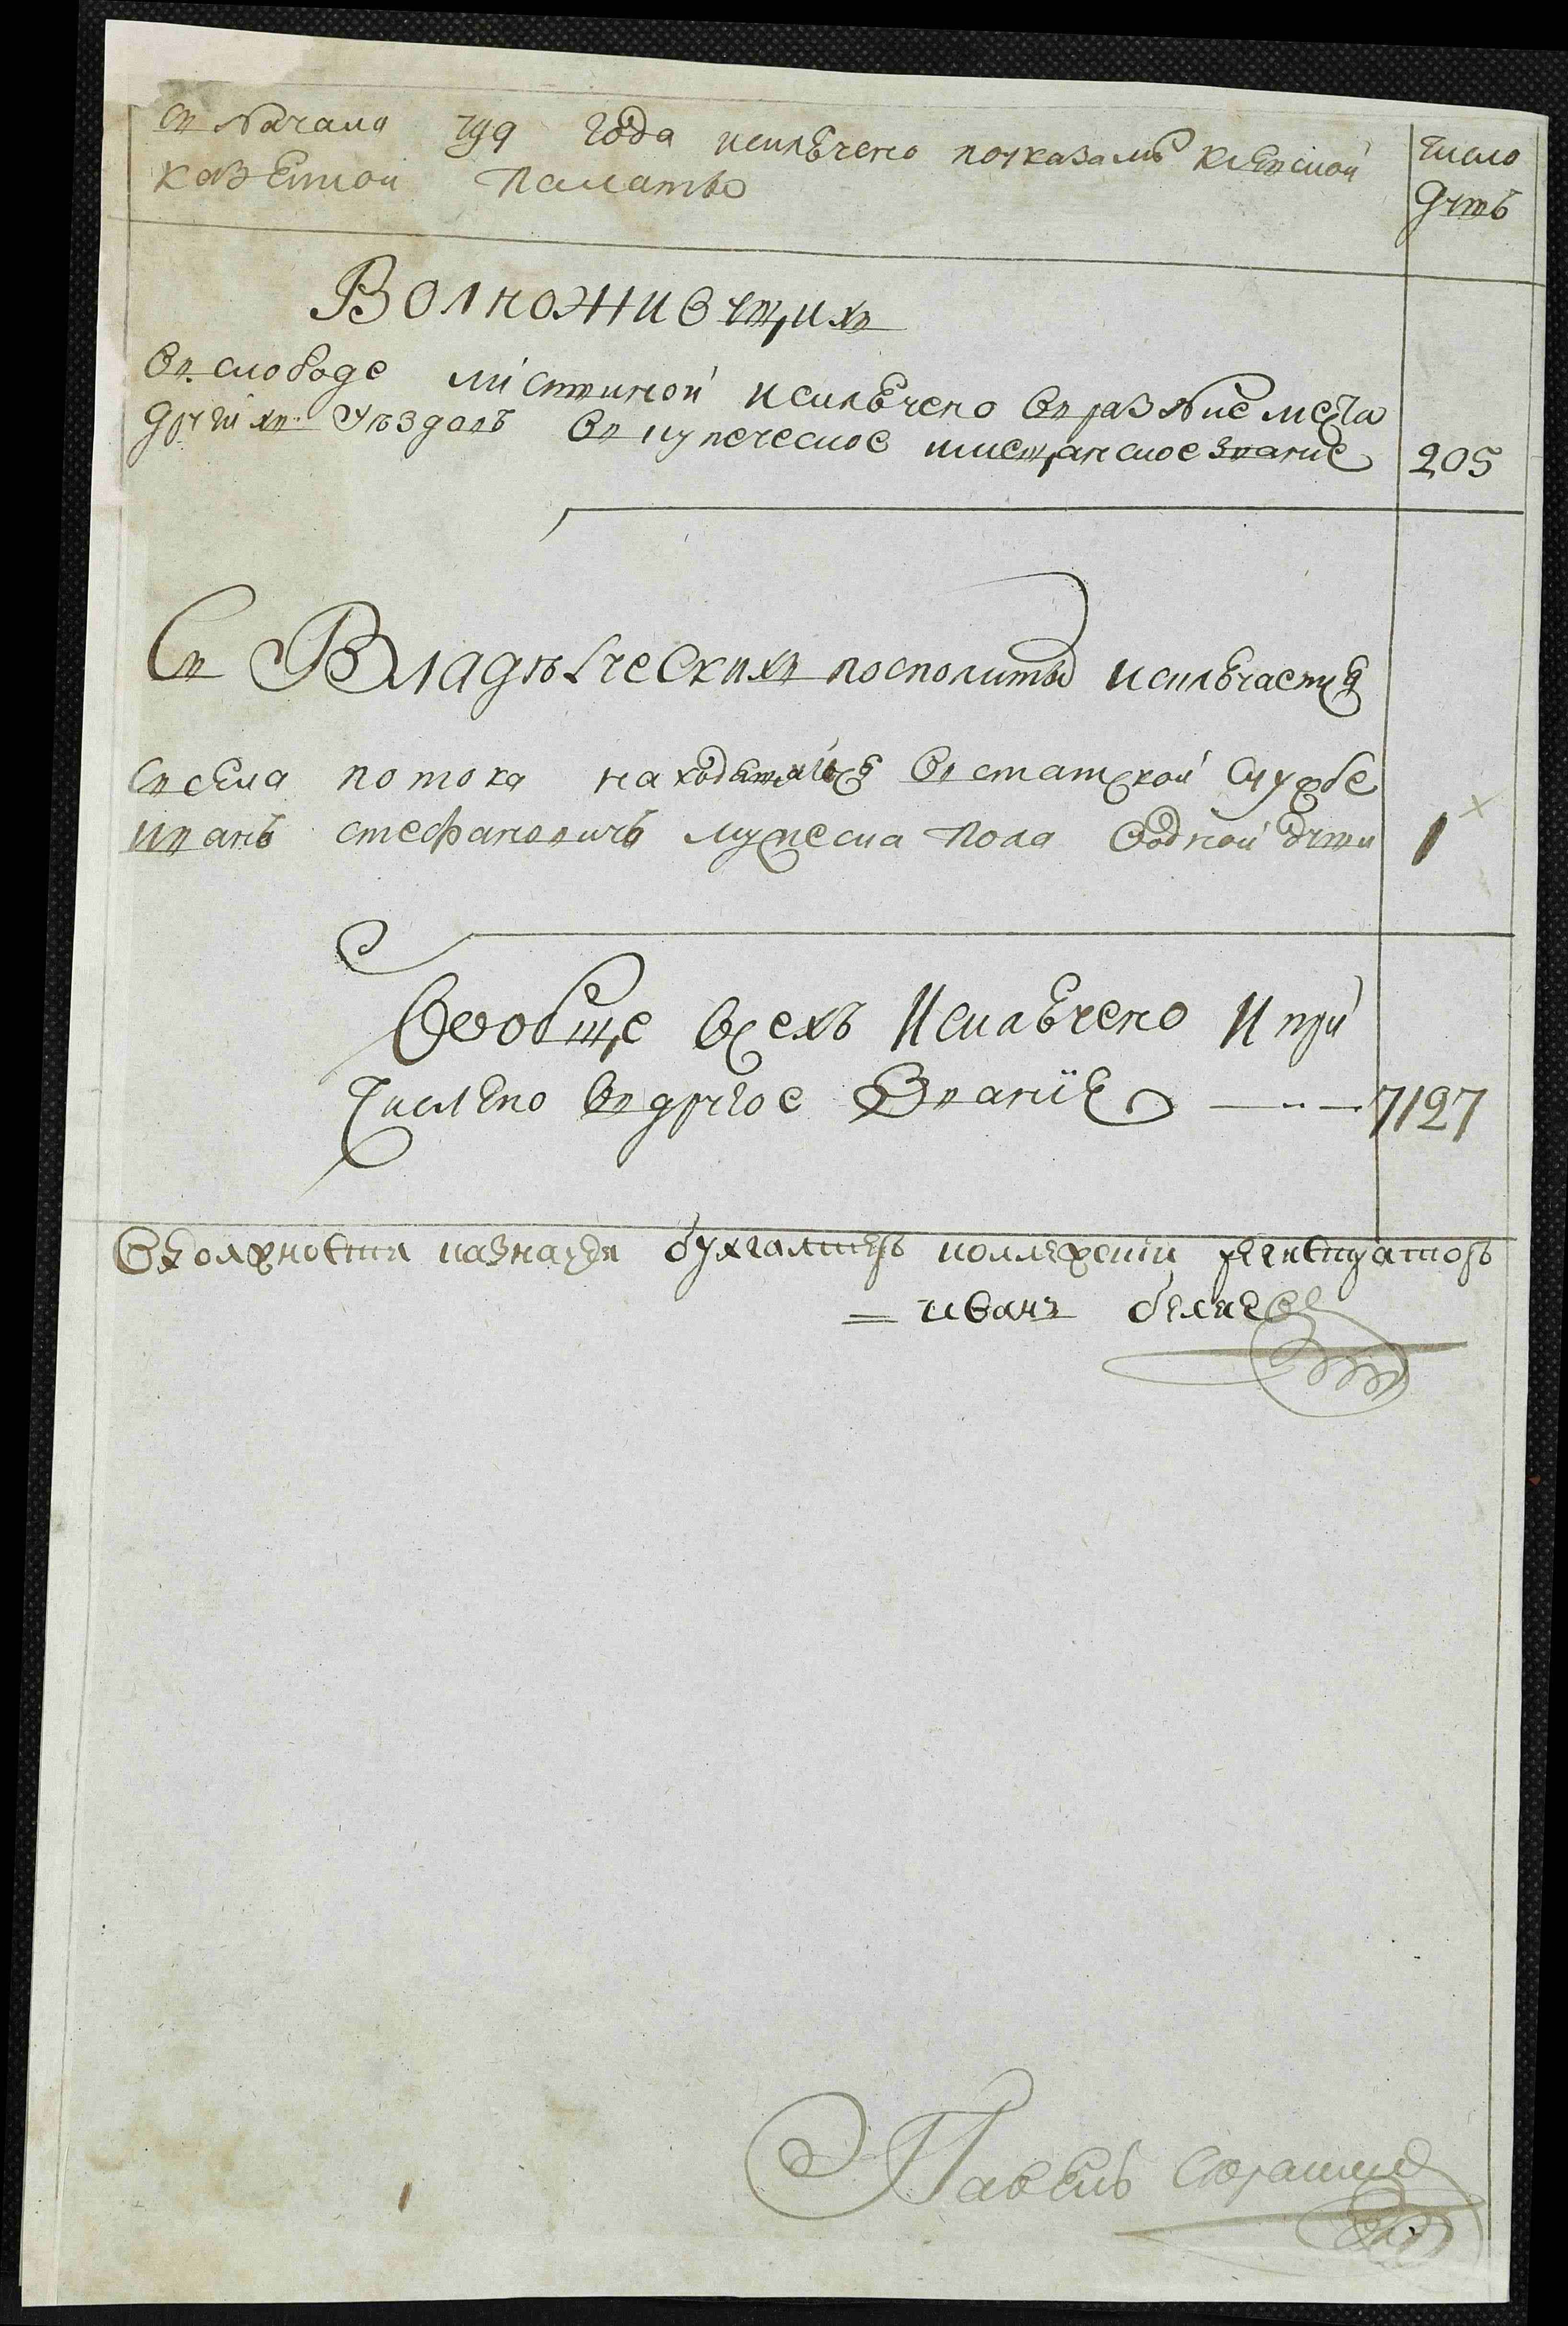 съ начала 799 года исключено поуказамъ киевской
казенной палаты
число
душъ
Волножившихъ
въ слободе мостиской исключено въ разные места
другихъ уѣздовъ въ купеческое имещанское звание 205
Съ Владѣлческихъ посполитыхъ исключается
съ села потока находящийся въ статской службе
иванъ стефановичъ мужеска пола водной души 1
Вообще всехъ Исключено И при
числено въ другое Звание 7127
Вдолжности казначея бухгалтеръ коллежский регистраторъ
иванъ
Павелъ